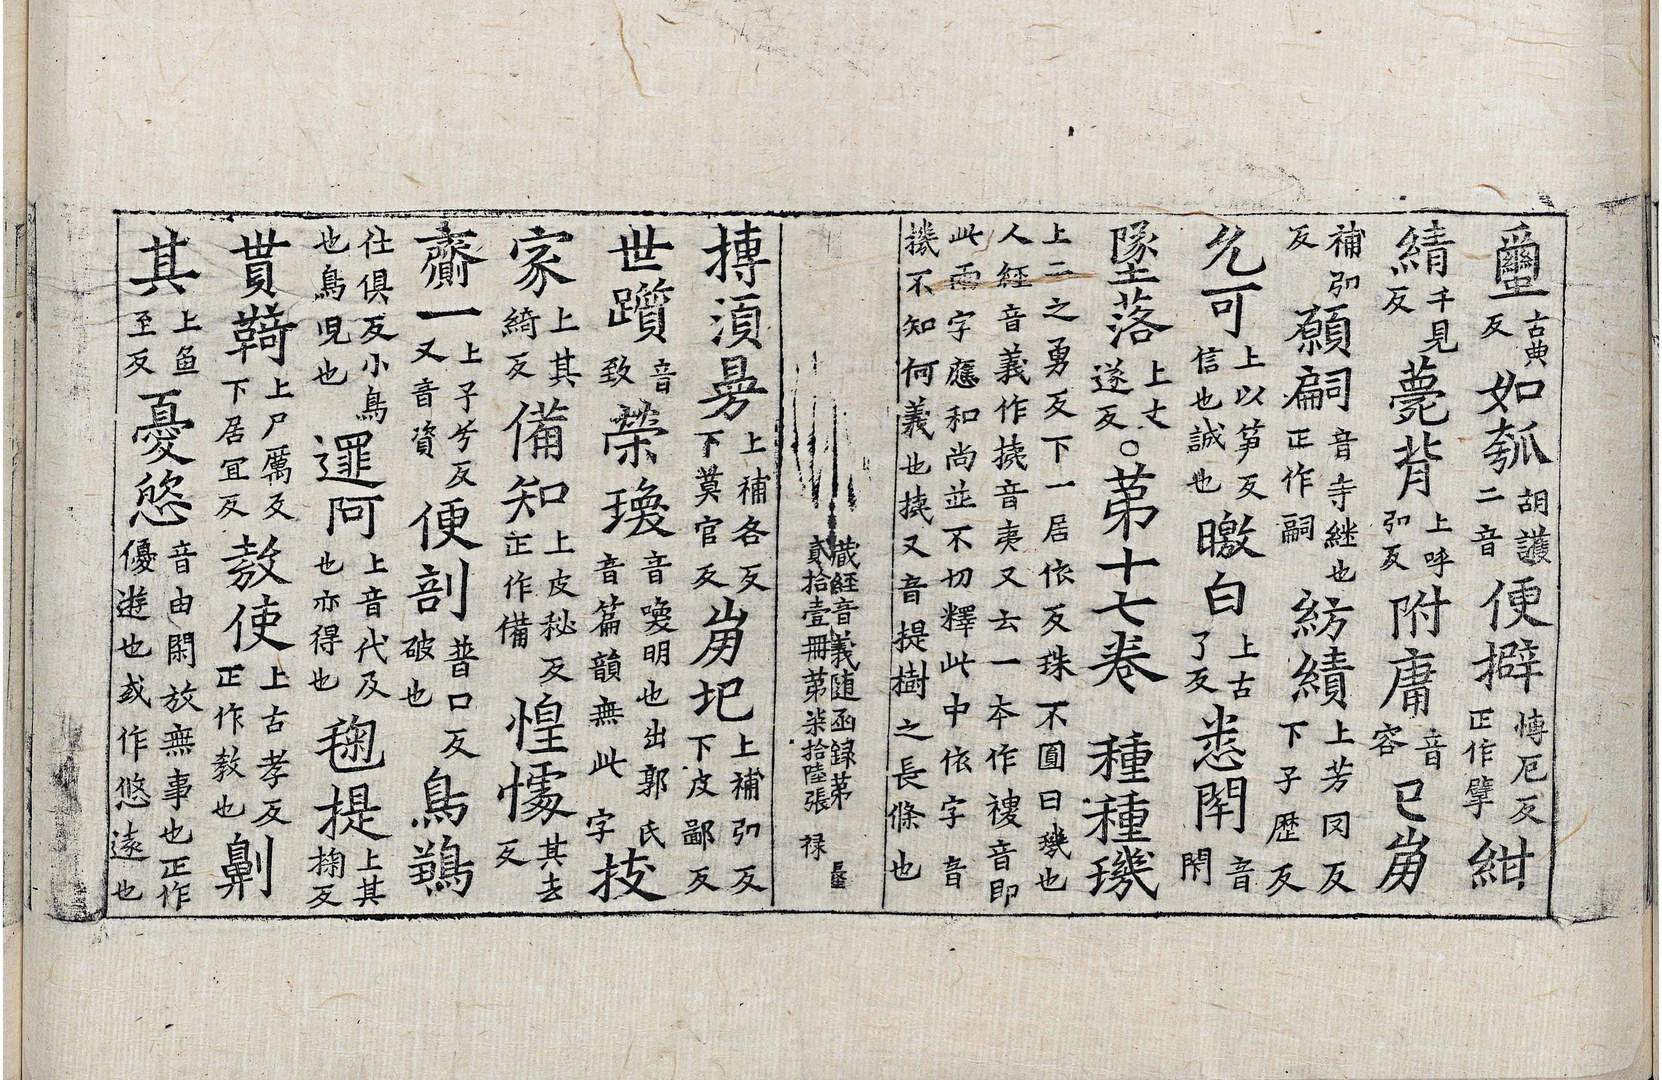 璽古典反如瓠胡護二音便擗愽厄反正作擘紺
績千見反薨背上呼弘反附庸音容已崩
補弘反願扁音寺継也正作嗣紡績上芳冈反下子歴反
允可上以笋反信也誠也曒白上古了反悉閉音閇
墜落上丈遂反○第十七卷種種璣
上二之勇反下一居依反珠不圓曰璣也
人經音義作㨖音夷又去一本作禝音即
此兩字應和尚並不切釋此中依字音
攙不知何義也㨖又音提樹之長條也
蔵經音義随函錄第貳拾壹冊第柒拾陸張 禄
搏須㬅上補各反下莫官反崩圮上補弘反下皮鄙反
世躓音致榮瓊音奐明也出郭氏音篇韻無此字技
家上其綺反備知上皮秘反正作備惶懅其去反
齋一上子兮反又音資便剖普口反破也鳥鵄
往俱反小鳥也鳥皃也邏阿上音代及也亦得也毱提上其掬反
貰鞯上尸厲反下居冝反敎使上古孝反正作教也劓
其上魚至反憂悠音由閑放無事也正作優遊也或作悠遠也